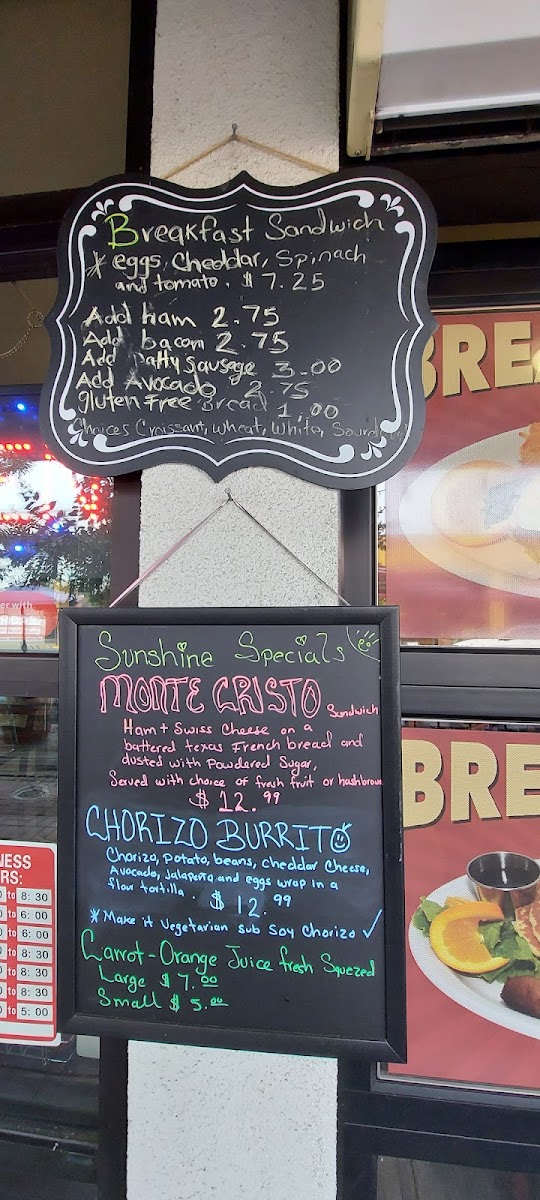 Breakfast Sandwich
* eggs, Cheddar, Spinach
and tomato. $ 7.25
Add ham 2.75
Add bacon 2.75
Add Patty Sausage 3.00
Add Avocado 2.75
gluten Free Bread 1.00
Choices Croissant, wheat, White,
BRE
Sunshine Specials
MONTE CRISTO Sandwich
Ham + Swiss Cheese on a
battered texas French bread and
dusted with Powdered Sugar,
Served with choice of fresh fruit or hashbrown
$ 12.99
CHORIZO BURRITO
Chorizo, potato, beans, cheddar Cheese,
Avocado, Jalapeño and eggs wrap in a
flour tortilla. $ 12.99
* Make it Vegetarian sub Soy Chorizo ✓
Carrot-Orange Juice fresh Squezed
Large $ 7.00
Small $ 5.00
BRE
er with
NESS
RS:
to 8:30
to 6:00
to 6:00
to 8:30
to 8:30
to 8:30
to 5:00